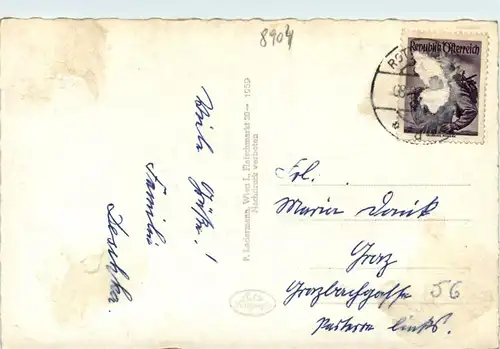 8904
Republik Österreich
Viele Grüße!
Familie
P. Ledermann, Wien I., Fleischmarkt 20 — 1959
Nachdruck verboten
Frl.
Maria
Graz
Grazbachgasse 56
Parterre links.